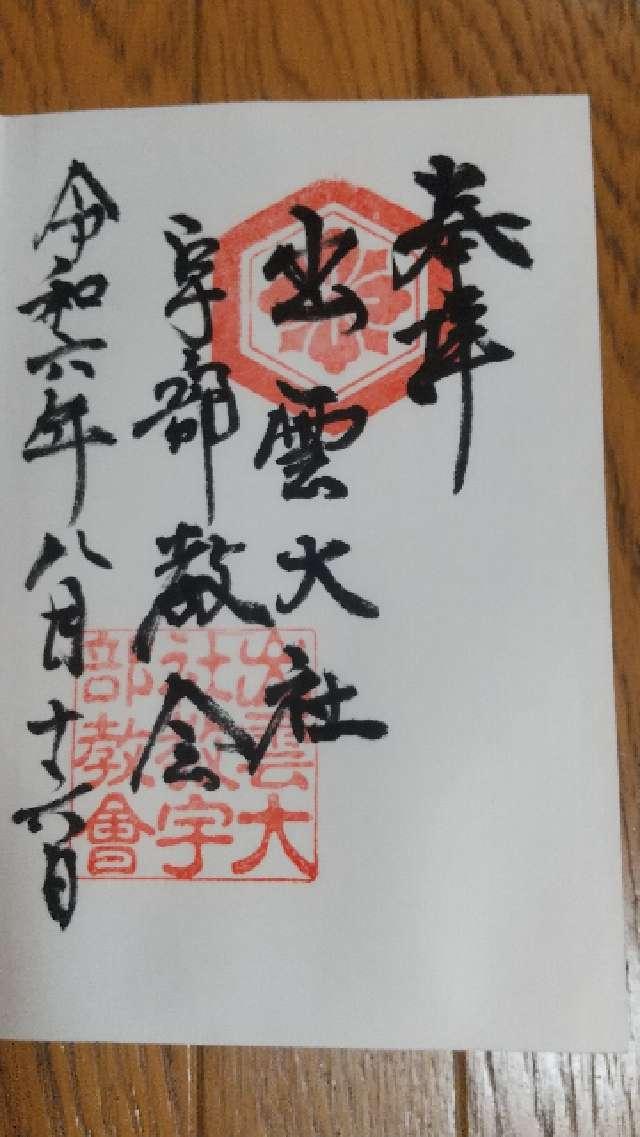 奉拝
出雲大社
宇部教会
令和六年八月十六日
出雲大
社教宇
部教會